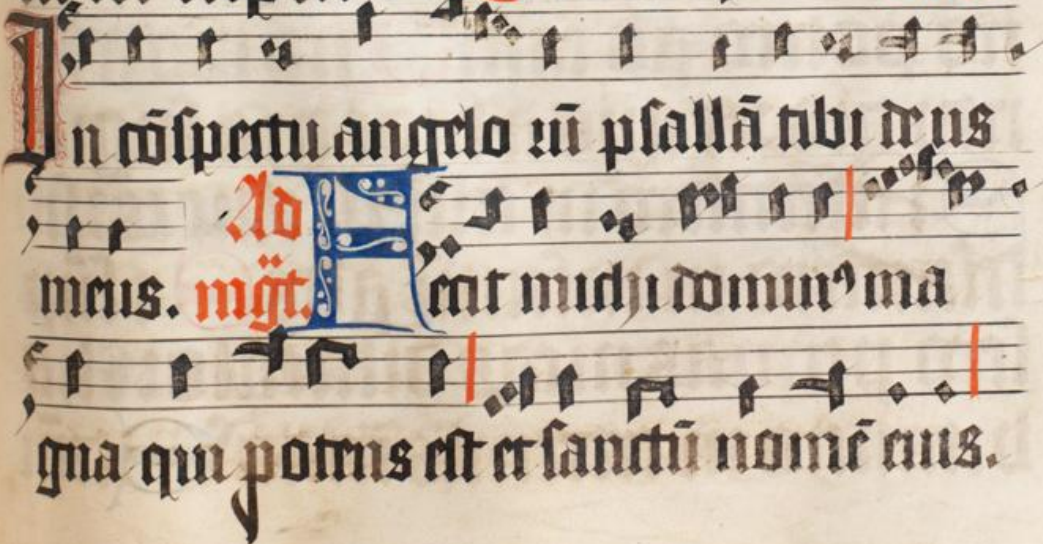 In cōspectu angelo rū psallā tibi deus
meus. Ad mgt. Fecit michi dominꝰ ma
gna qui potens est et sanctū nomē eius.